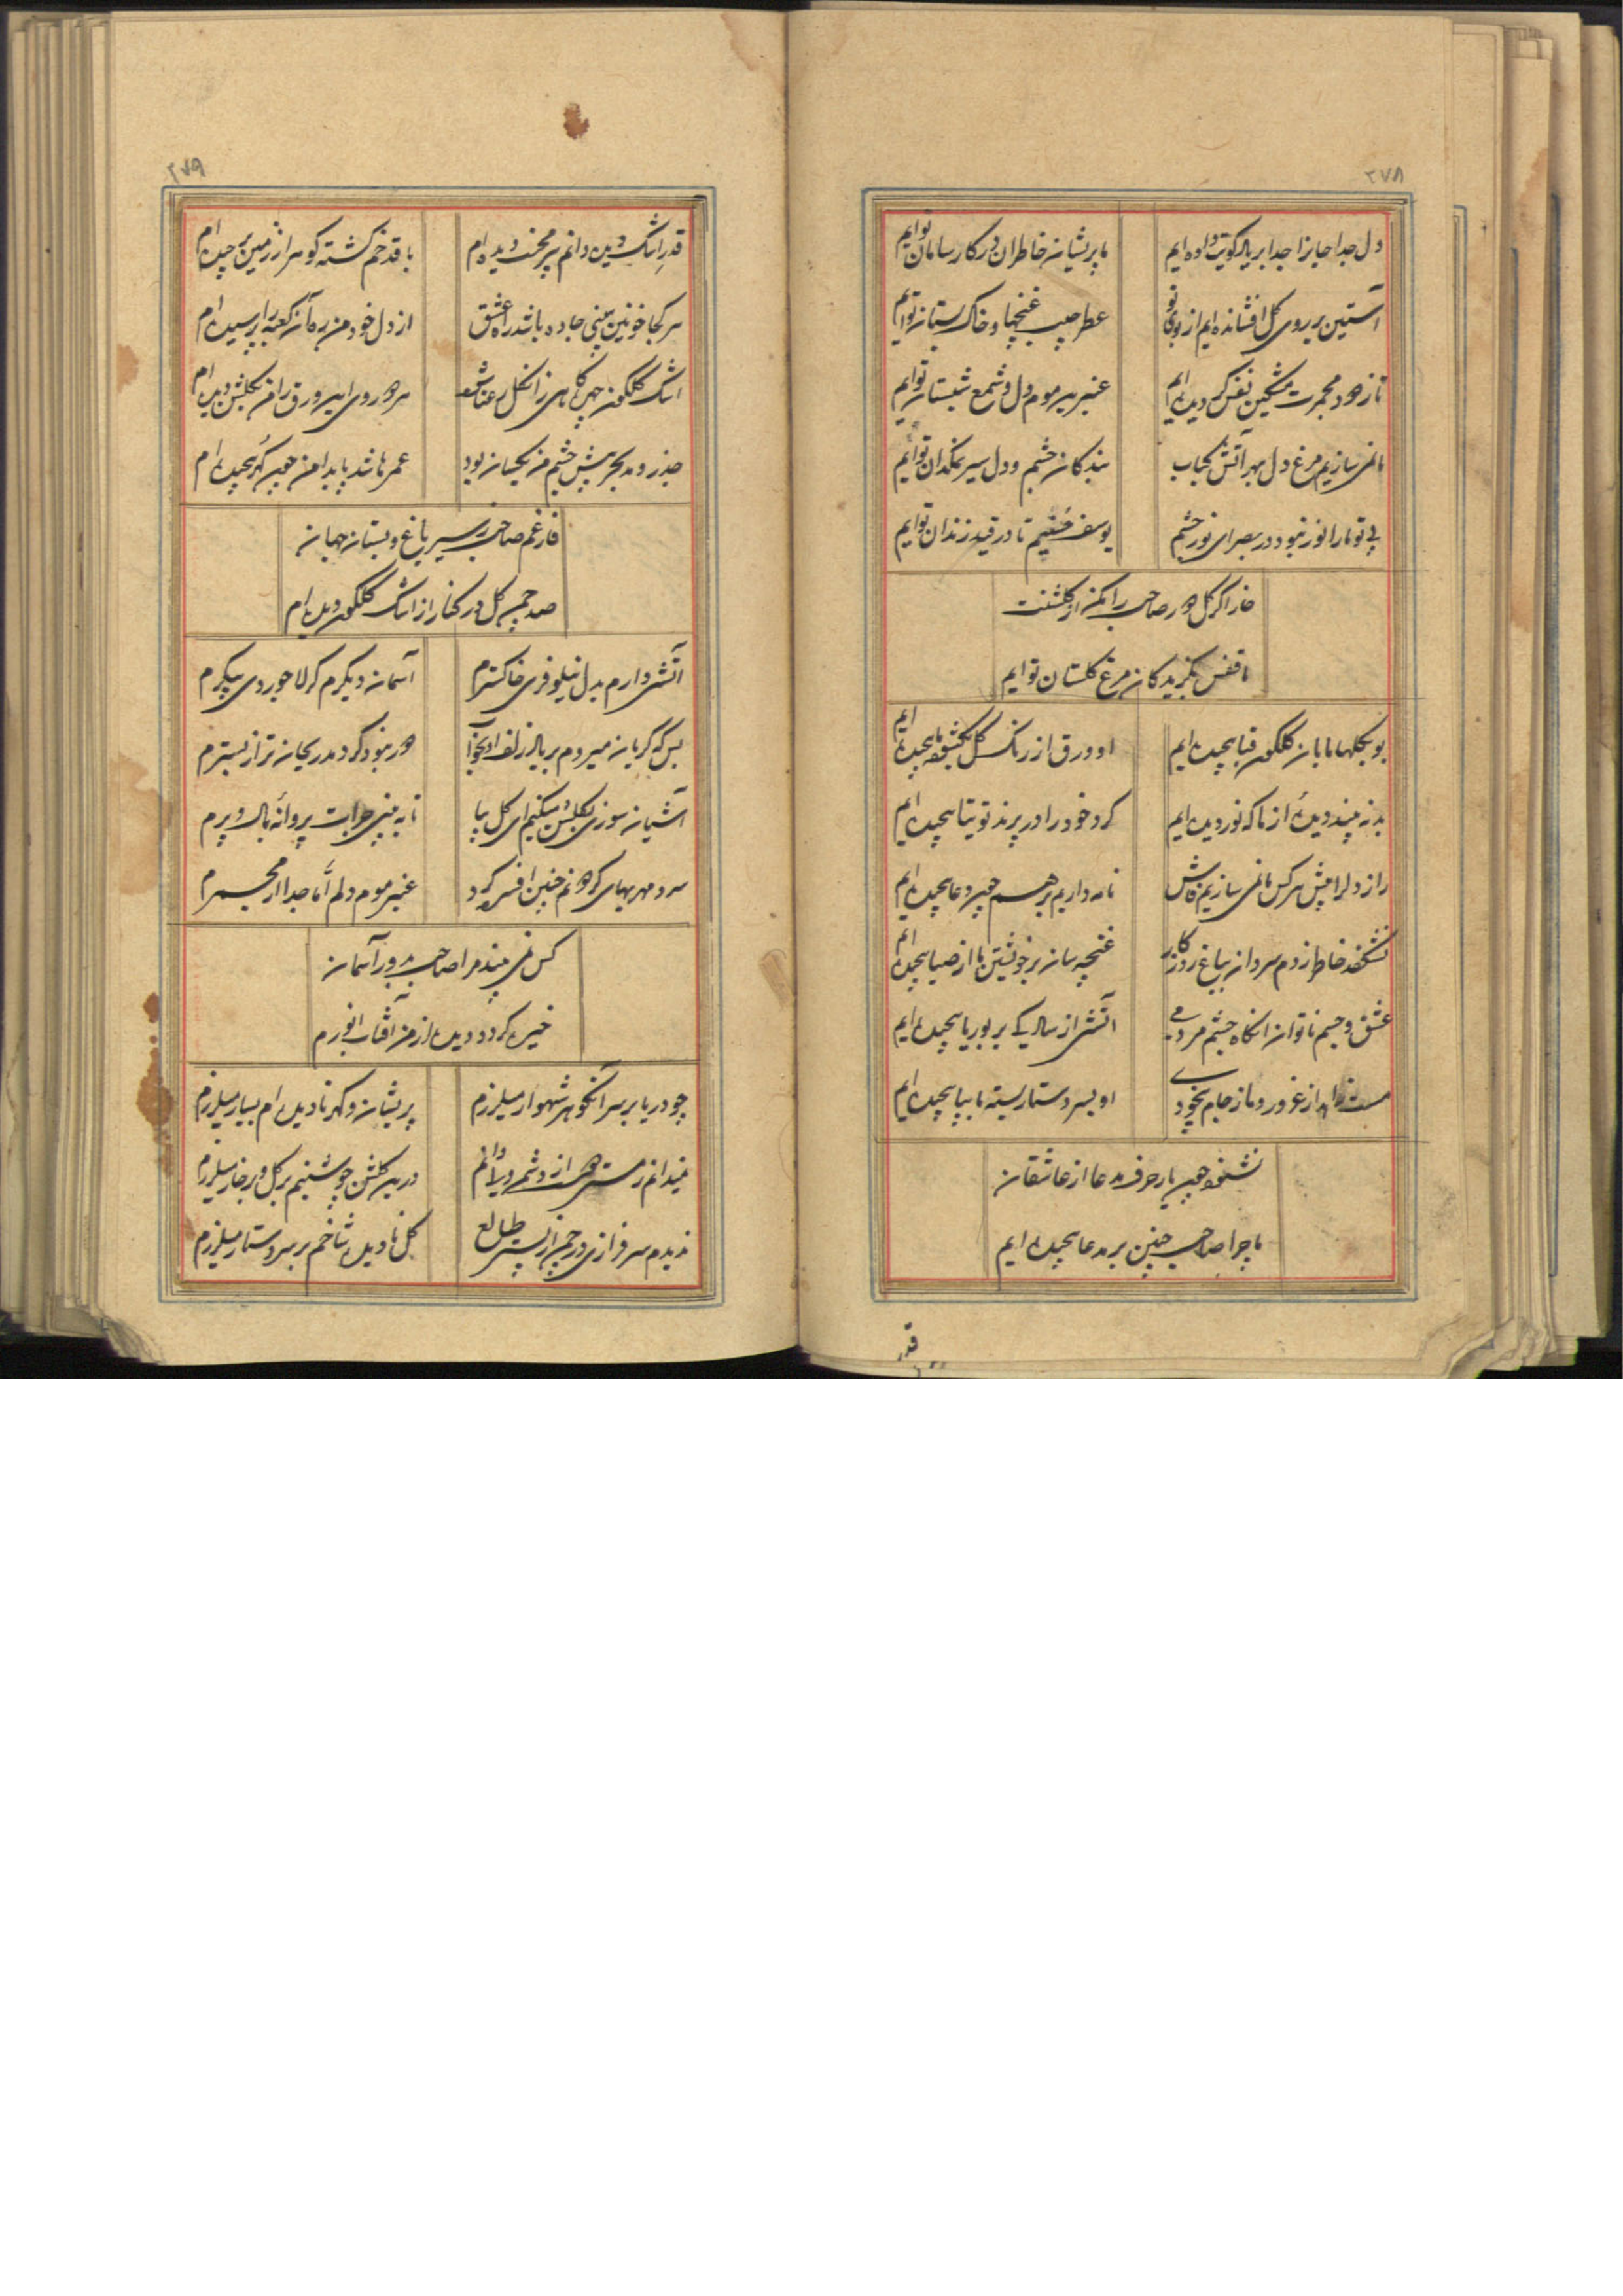 ۲۷۸
دل جدا جانرا جدا بر یاد کویت داده ایم
ما پریشان خاطران در کار سامان توایم
آستین بر روی گل افشانده ایم از بوی تو
عطر جیب غنچها و خاک بستان توایم
تا ز عود مجمرت مشکین نفس گردیده ایم
عنبرین موم دل و شمع شبستان توایم
ما نمی سازیم مرغ دل بهر آتش کباب
بندگان چشم و دل سیر نمکدان توایم
بی تو ما را نور نبود در بصر ای نور چشم
یوسف خنیم تا در قید زندان توایم
خار اگر گل صاحب را مکن از گلشنت
ما قفس بگزیدگان مرغ گلستان توایم
بو بگلها ما بان گلگون قبا پیچیده ایم
او ورق از رنگ گل ما پیچیده ایم
بد نه بیند دیدهٔ از ما که نور دیده ایم
گرد خود را در پرند توتیا پیچیده ایم
راز دلرا پیش هر کس ما نمی سازیم فاش
نامه داریم بر هم چون دعا پیچیده ایم
نشکفد خاطر ز دم سردان بباغ روزگار
غنچه سان بر خویشتن ما از صبا پیچیده ایم
عشق و جسم ناتوان انگاه چشم مردمی
آتش از سال یکی بر بوریا پیچیده ایم
مست زاهد از غرور و ما ز جام بیخودی
او بسر دستار بسته ما بپا پیچیده ایم
نشنود هیچ یار حرف مدعا از عاشقان
ما چرا صاحب چنین بر مدعا پیچیده ایم
قدر
۲۷۹
قدر اشک دیده دانم پر محنت دیده ام
با قد خم گشته گوهر از زمین برچیده ام
هر کجا خونین ببینی جاده باشد راه عشق
از دل خود من ره آن کعبه را پرسیده ام
اشک گلگون چهره کاهی ز آن گل رعنا شد
هر دو روی این ورق را من بگلشن دیده ام
جذر و مد بحر پیش چشم من یکسان بود
عمرها شد پا بدامن چون گهر پیچیده ام
فارغم صاحب ز سیر باغ و بستان جهان
صد چمن گل در کنار از اشک گلگون دیده ام
آتشی دارم بدل نیلوفری خاکسترم
آسمان دیگرم گر لاجوردی پیکرم
بس که گریان میروم بر یاد زلف او بخواب
دور نبود گر دمد ریحان تر از بسترم
آشیان سوزی بگلشن میکنم ای گل بیا
تا به بینی جرأت پروانهٔ بال و پرم
سرد مهریهای گردونم چنین افسرده کرد
عنبر موم دلم اما جدا از مجمرم
کس نمی بیند مرا صاحب بدور آسمان
خیره گردد دیده از من آفتاب انورم
چو دریا بر سر آن گوهر شهوار میلرزم
پریشان و گهر نادیده ام بسیار میلرزم
نمیدانم ز مستی هم از دشمن ولا دانم
درین گلشن چو شبنم بر گل و بر خار میلرزم
ندیدم سرفرازی در چمن از پستی طالع
گل نادیده شاخم بر سر دستار میلرزم